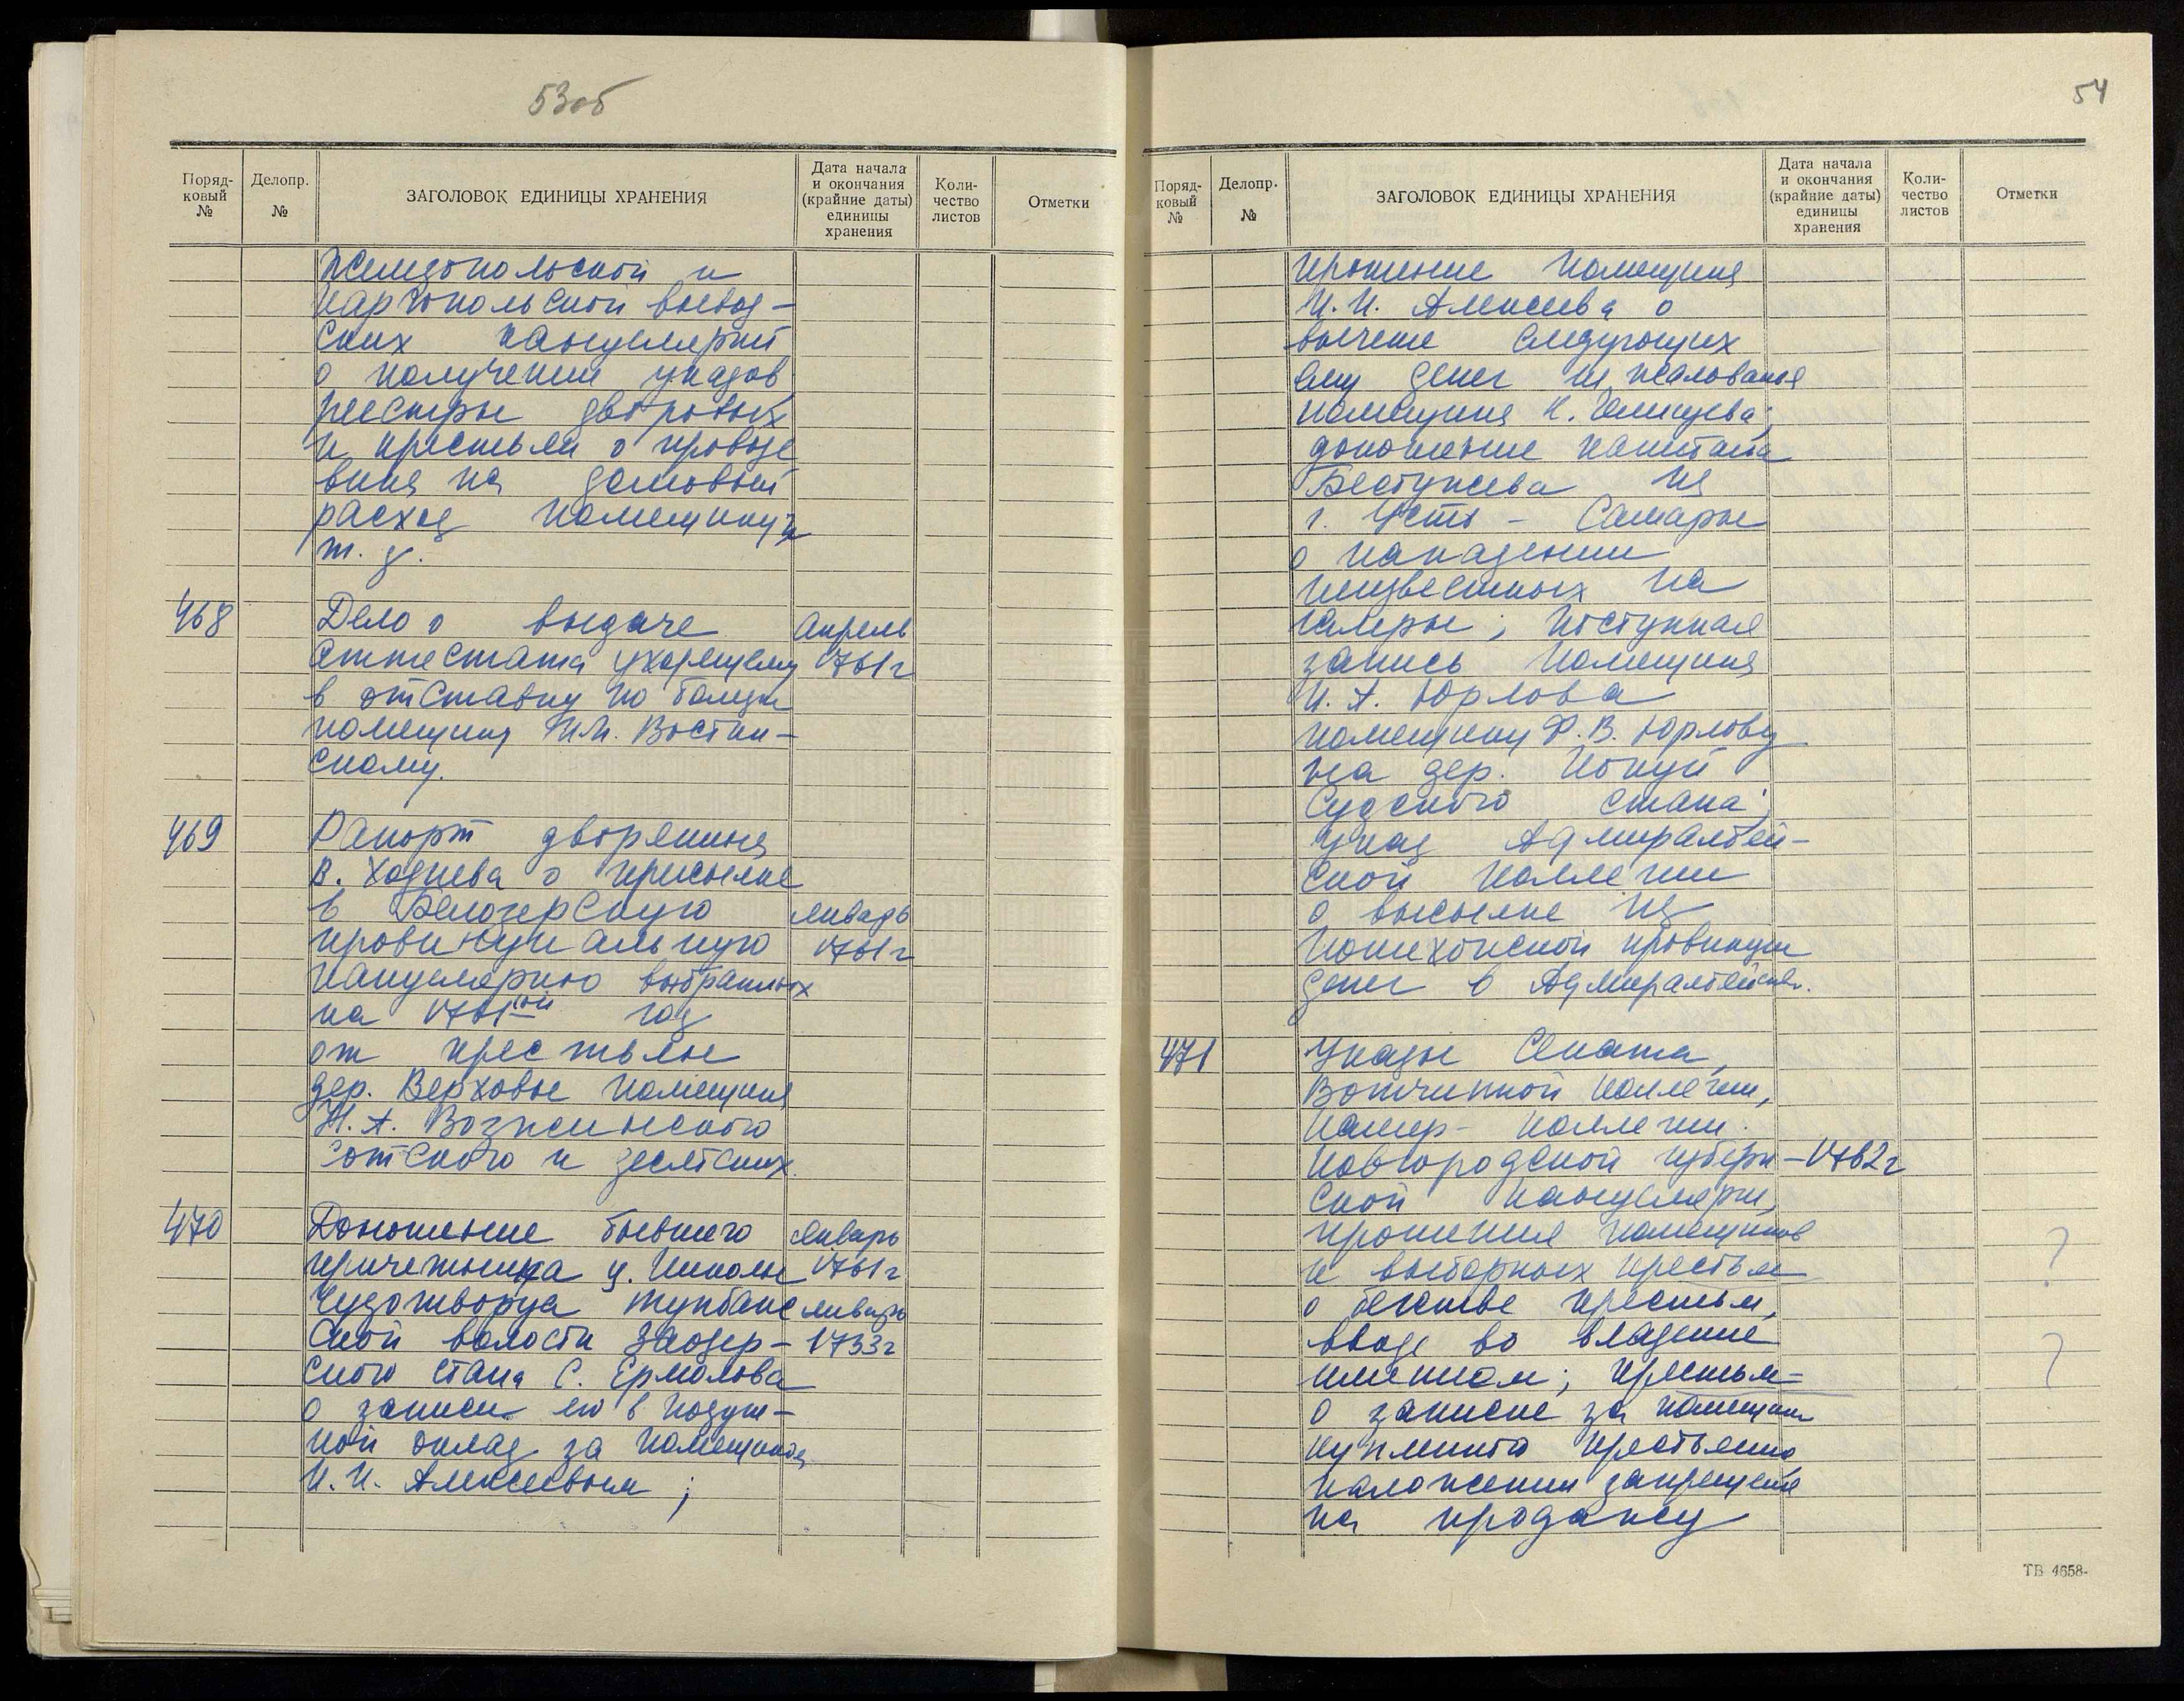 53об
Поряд-
ковый
№
Делопр.
№
ЗАГОЛОВОК ЕДИНИЦЫ ХРАНЕНИЯ
Дата начала
и окончания
(крайние даты)
единицы
хранения
Коли-
чество
листов
Отметки
Каргопольской воевод-
ских канцелярий
о получении указов
реестры дворовых
и крестьян о провозе
вина на домовый
расход помещику и
т. д.
468
Дело о выдаче
аттестата уходящему
в отставку по болезни
помещику
скому.
апрель
1761 г
469
Рапорт дворянина
В. Ходнева о присылке
в Белозерскую
провинциальную
канцелярию выбранных
на 1761ый год
от крестьян
дер. Верховье помещика
Н. А. Возжинского
сотского и десятских.
январь
1761 г
470
Доношение бывшего
причетника ц. Николы
Чудотворца
ской волости Заозер-
ского стана С. Ермолова
о записи его в подуш-
ной оклад за помещиком
И. И. Алексеевым ;
январь
1761 г
январь
1733 г
54
Поряд-
ковый
№
Делопр.
№
ЗАГОЛОВОК ЕДИНИЦЫ ХРАНЕНИЯ
Дата начала
и окончания
(крайние даты)
единицы
хранения
Коли-
чество
листов
Отметки
прошение помещика
И. И. Алексеева о
вычете следующих
ему денег из жалованья
помещика
доношение капитана
Бестужева из
г. Усть - Самары
о нападении
неизвестных на
галеры ; поступная
запись помещика
И. А. Юрлова
помещику Ф. В. Юрлову
на дер. Покуй
Судского стана ;
указ Адмиралтей-
ской коллегии
о высылке из
Пошехонской провинции
денег в Адмиралтейств.
471
Указы Сената,
Вотчинной коллегии,
камер- коллегии.
Новгородской губерн-
ской канцелярии,
прошения помещиков
и выборных крестьян
о бегстве крестьян,
вводе во владение
имением ; крестьян-
о записке за помещиком
купленного крестьянина
наложении запрещения
на продажу
1762 г
?
?
ТВ 4658-